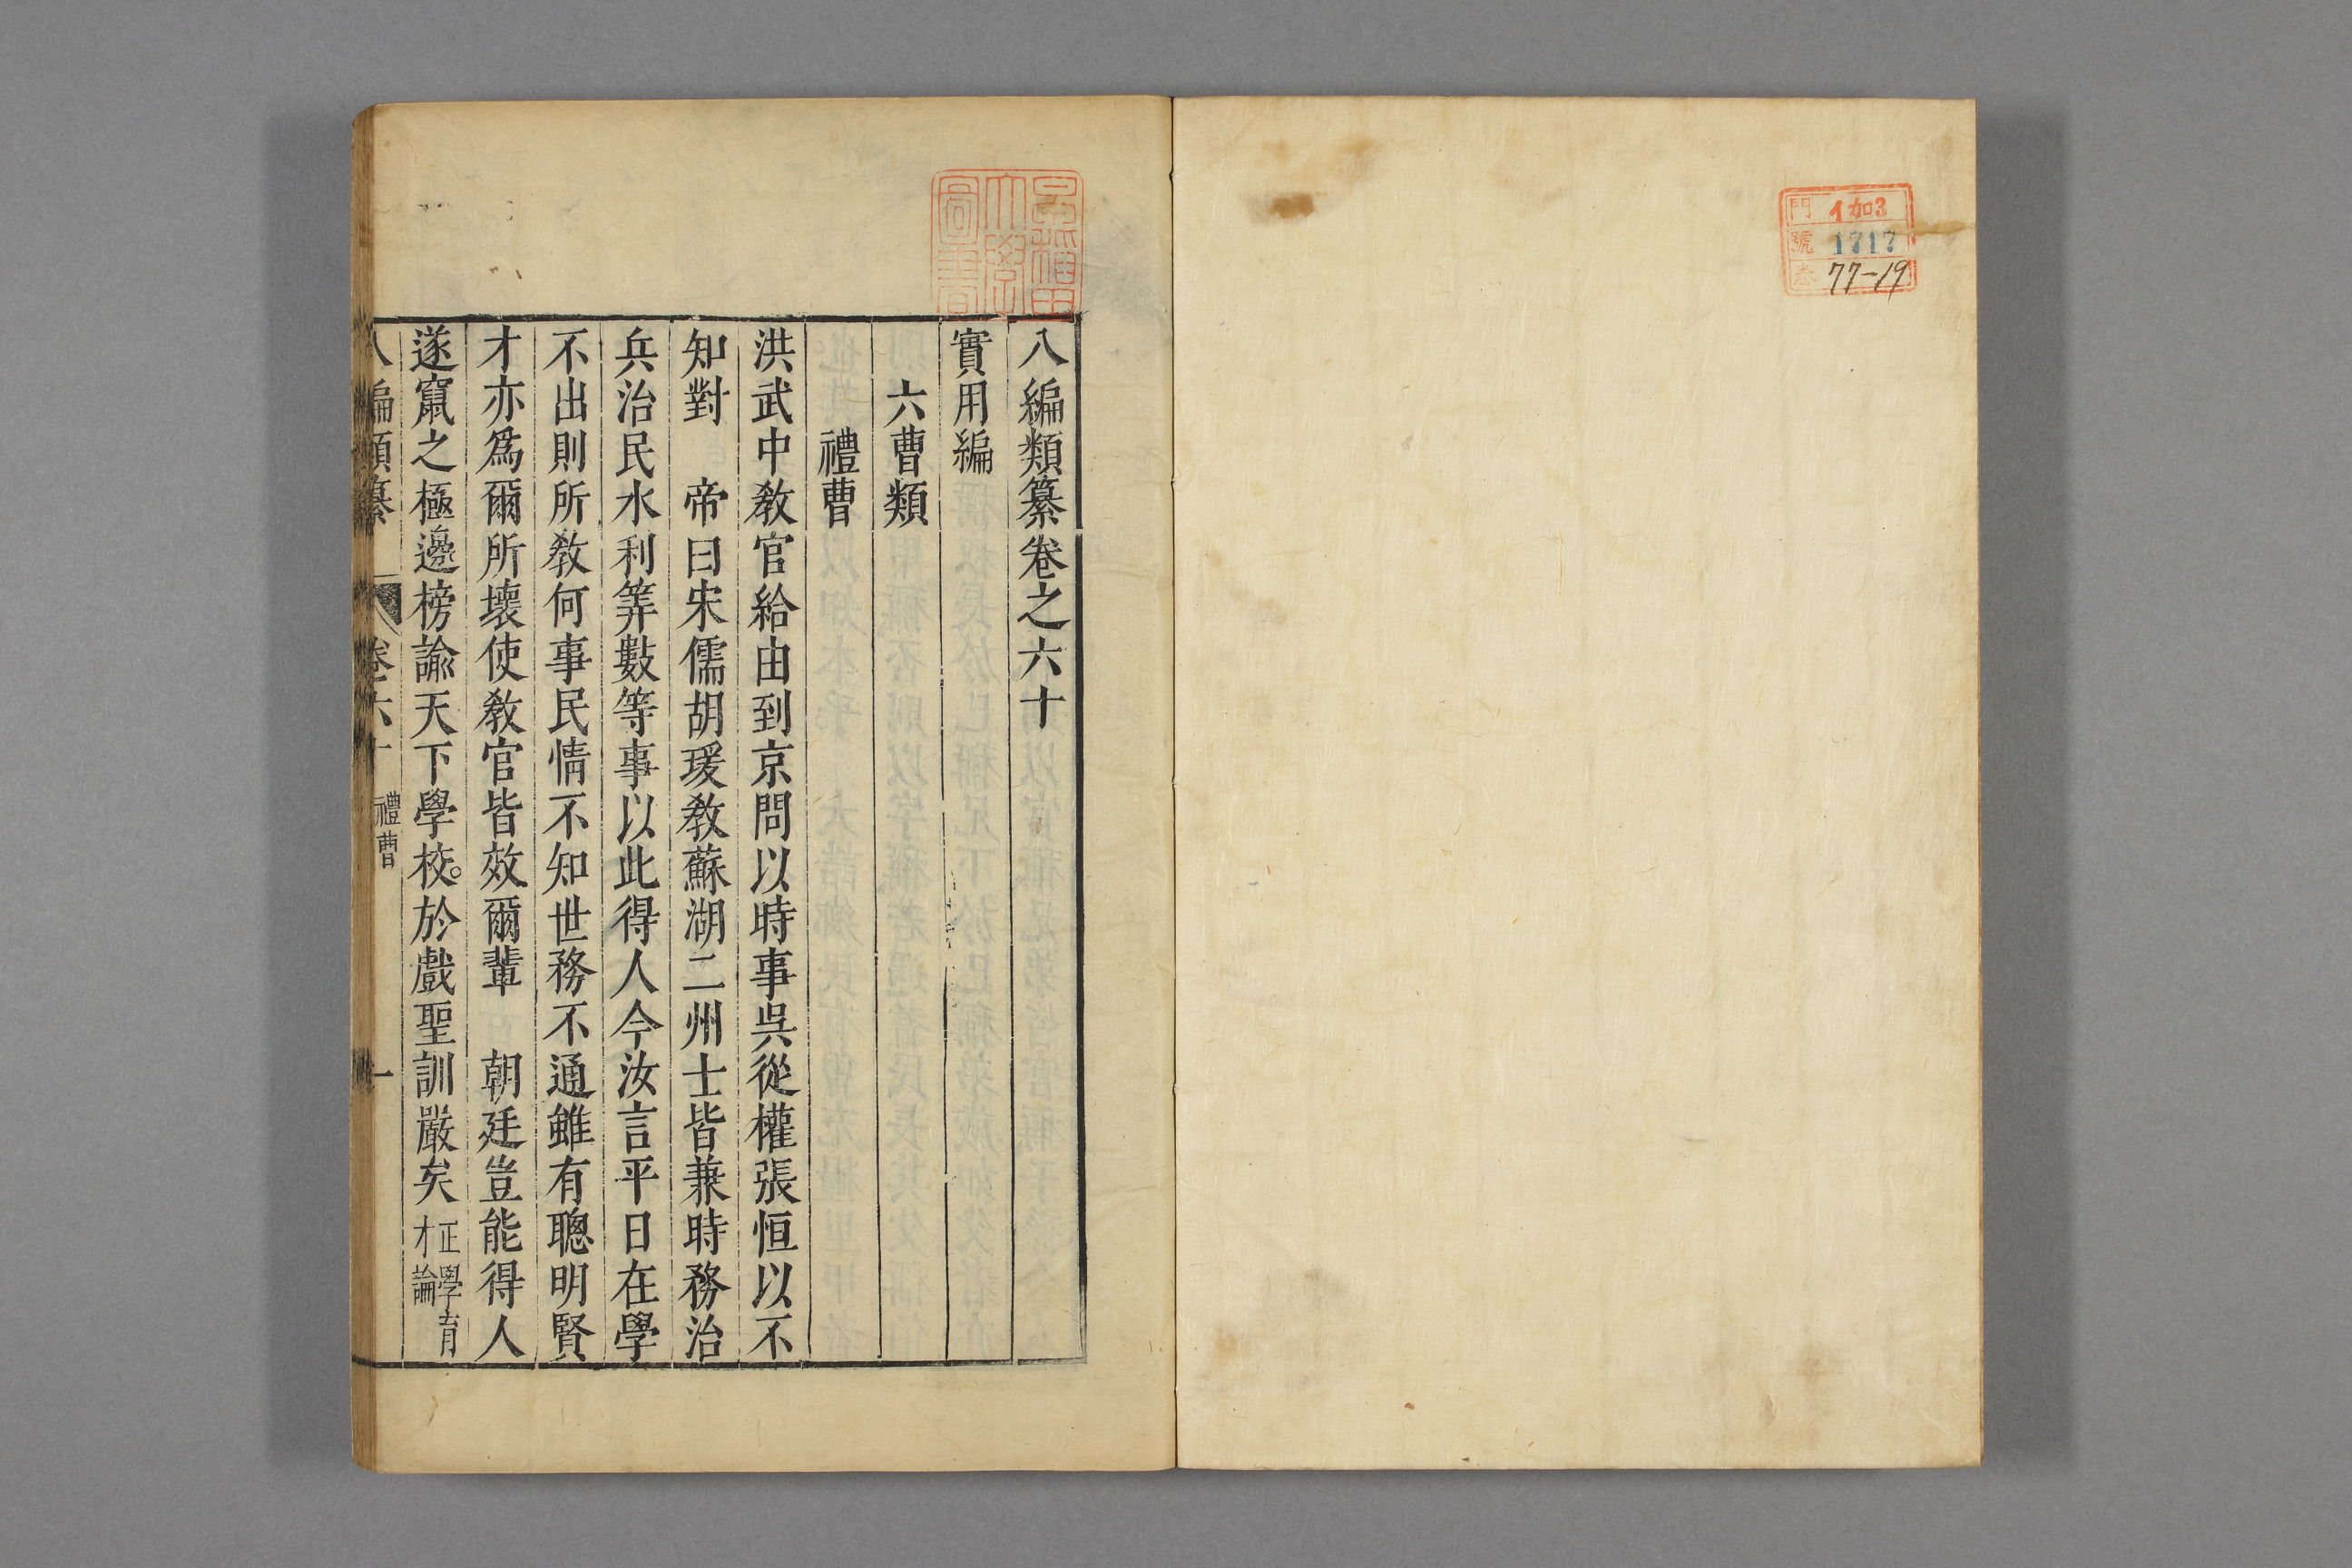 門 イ加3
號 1717
巻 77-19
早稲田
大學
圖書
八編類纂卷之六十
實用編
六曹類
禮曹
洪武中敎官給由到京問以時事吳從權張恒以不
知對 帝曰宋儒胡瑗敎蘇湖二州士皆兼時務治
兵治民水利筭數等事以此得人今汝言平日在學
不出則所敎何事民情不知世務不通雖有聰明賢
才亦爲爾所壞使敎官皆效爾輩 朝廷豈能得人
遂竄之極邊榜諭天下學校。於戲聖訓嚴矣
正學育
才論
八編類纂 卷六十 禮曹 一